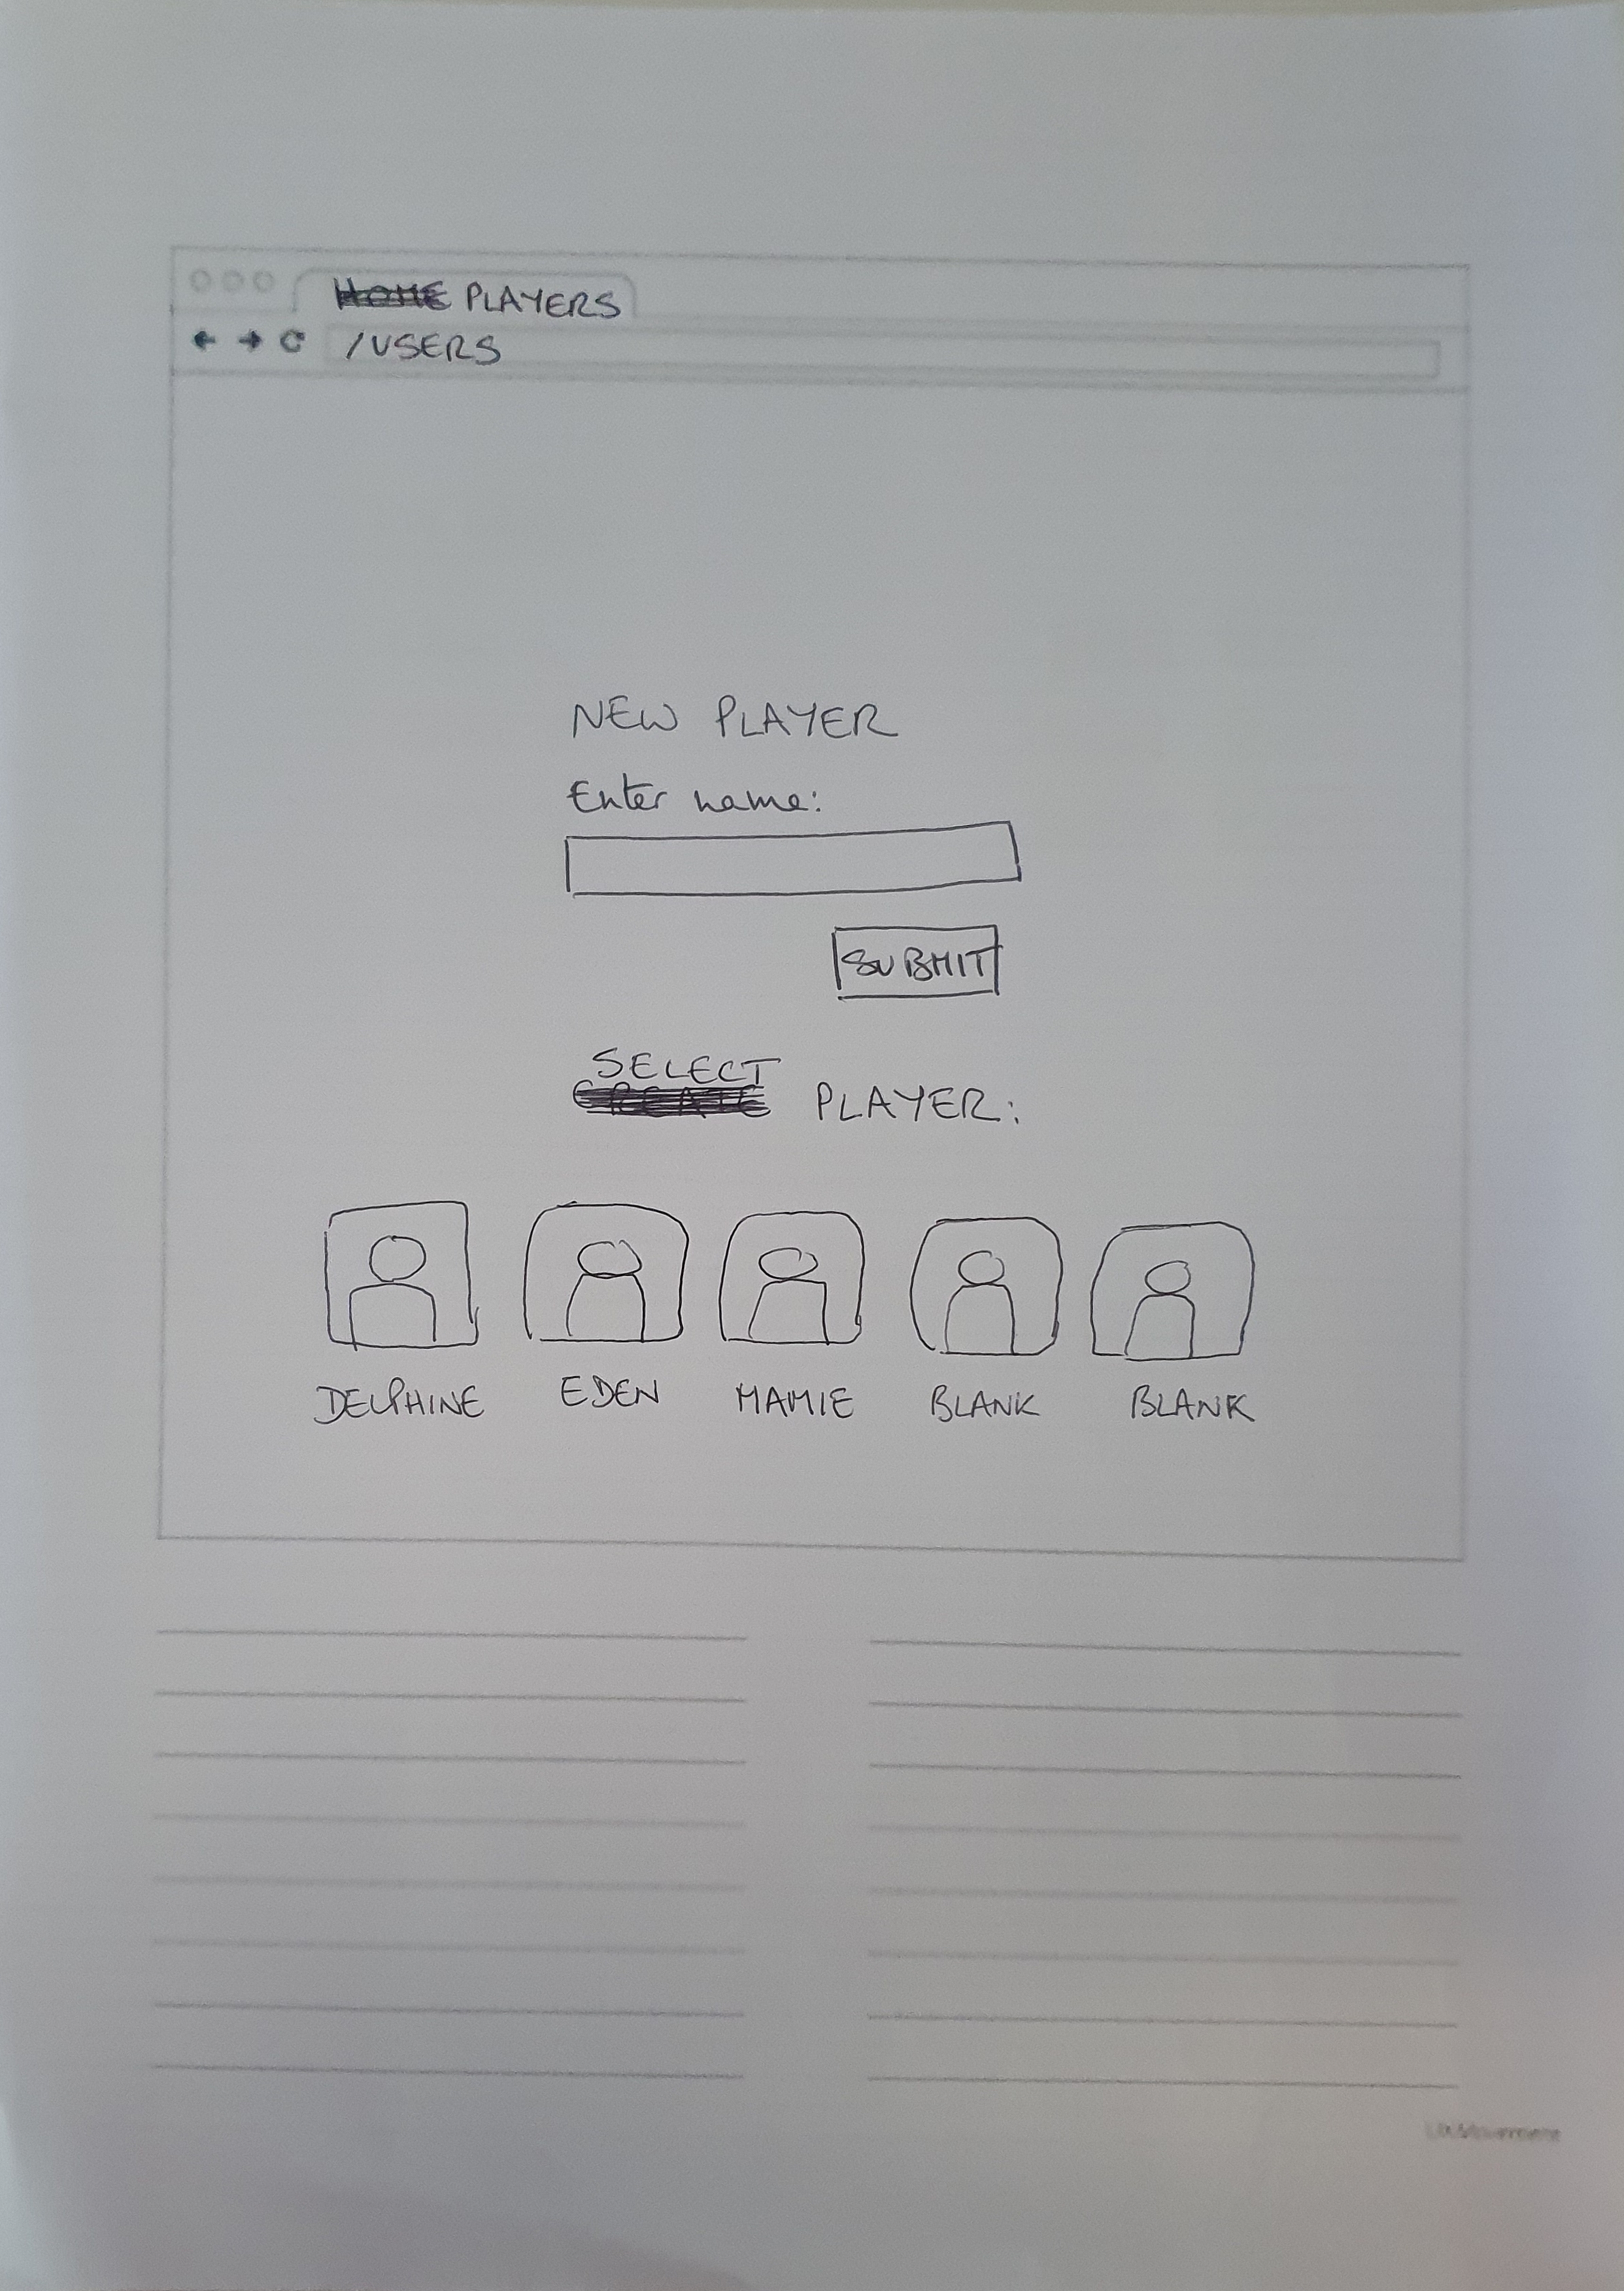 HOME PLAYERS
/USERS
NEW PLAYER
Enter name:
SUBMIT
SELECT
CREATE PLAYER:
DELPHINE EDEN MAMIE BLANK BLANK